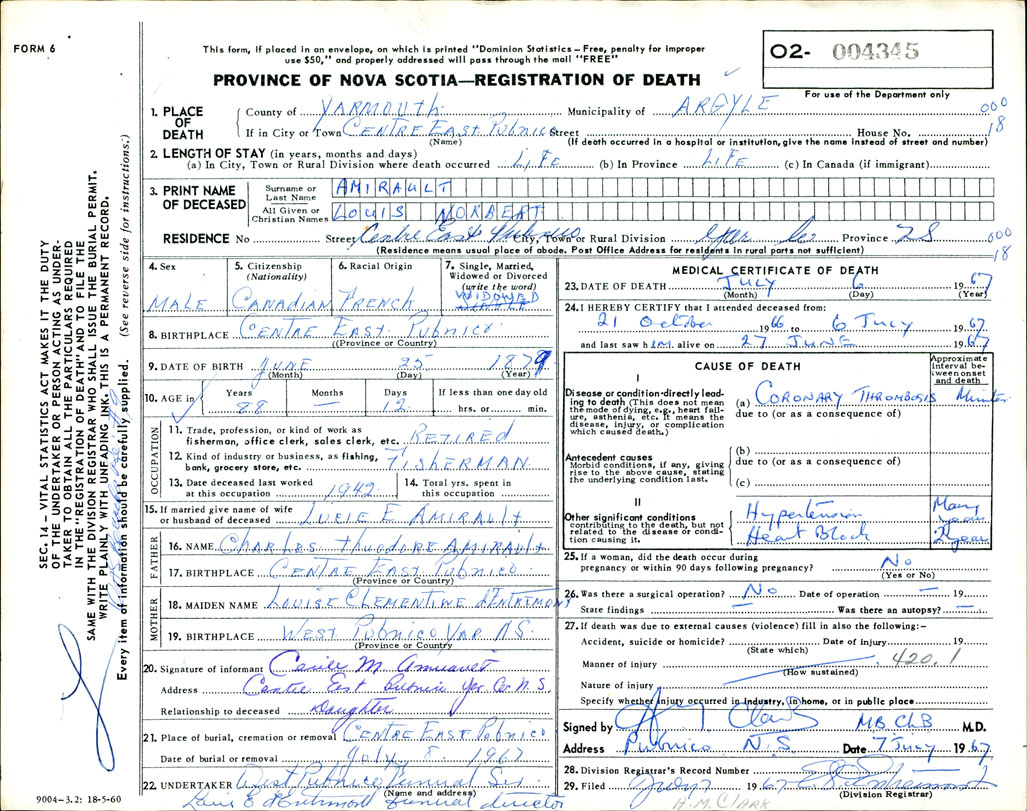 FORM 6
This form, if placed in an envelope, on which is printed "Dominion Statistics – Free, penalty for improper
use $50," and properly addressed will pass through the mail "FREE"
PROVINCE OF NOVA SCOTIA—REGISTRATION OF DEATH
02- 004345
For use of the Department only
1. PLACE OF DEATH
County of YARMOUTH Municipality of ARGYLE 000
If in City or Town CENTRE EAST PUBNICO Street House No. 18
(Name) (If death occurred in a hospital or institution, give the name instead of street and number)
2. LENGTH OF STAY (in years, months and days)
(a) In City, Town or Rural Division where death occurred LIFE (b) In Province LIFE (c) In Canada (if immigrant)
3. PRINT NAME OF DECEASED
Surname or Last Name AMIRAULT
All Given or Christian Names LOUIS NORBERT
RESIDENCE No Street Centre East Pubnico City, Town or Rural Division Yar Co Province NS 000
(Residence means usual place of abode. Post Office Address for residents in rural parts not sufficient) 18
4. Sex MALE
5. Citizenship (Nationality) CANADIAN
6. Racial Origin FRENCH
7. Single, Married, Widowed or Divorced (write the word) WIDOWED
8. BIRTHPLACE CENTRE EAST PUBNICO
(Province or Country)
9. DATE OF BIRTH JUNE 25 1879
(Month) (Day) (Year)
10. AGE in Years Months Days If less than one day old
88 — 12 hrs. or min.
OCCUPATION
11. Trade, profession, or kind of work as
fisherman, office clerk, sales clerk, etc. RETIRED
12. Kind of industry or business, as fishing,
bank, grocery store, etc. FISHERMAN
13. Date deceased last worked
at this occupation 1942
14. Total yrs. spent in
this occupation
15. If married give name of wife
or husband of deceased LUCIE E AMIRAULT
FATHER
16. NAME CHARLES THEODORE AMIRAULT
17. BIRTHPLACE CENTRE EAST PUBNICO
(Province or Country)
MOTHER
18. MAIDEN NAME LOUISE CLEMENTINE D'ENTREMONT
19. BIRTHPLACE WEST PUBNICO YAR NS
(Province or Country)
20. Signature of informant M. Amirault
Address Centre East Pubnico Yar Co. N.S.
Relationship to deceased Daughter
21. Place of burial, cremation or removal CENTRE EAST PUBNICO
Date of burial or removal July 8 1967
22. UNDERTAKER West Pubnico Funeral Ser.
(Name and address)
E d'Entremont funeral director
9004-3.2: 18-5-60
MEDICAL CERTIFICATE OF DEATH
23. DATE OF DEATH JULY 6 1967
(Month) (Day) (Year)
24. I HEREBY CERTIFY that I attended deceased from:
21 October 1966 to 6 July 1967
and last saw him alive on 27 JUNE 1967
CAUSE OF DEATH
Approximate interval between onset and death
I
Disease or condition directly leading to death (This does not mean the mode of dying, e.g., heart failure, asthenia, etc. It means the disease, injury, or complication which caused death.)
(a) CORONARY THROMBOSIS
due to (or as a consequence of)
Antecedent causes
Morbid conditions, if any, giving rise to the above cause, stating the underlying condition last.
(b)
due to (or as a consequence of)
(c)
II
Other significant conditions
contributing to the death, but not related to the disease or condition causing it.
Hypertension Many years
Heart Block 2 years
25. If a woman, did the death occur during
pregnancy or within 90 days following pregnancy? No
(Yes or No)
26. Was there a surgical operation? No Date of operation — 19
State findings — Was there an autopsy? —
27. If death was due to external causes (violence) fill in also the following:–
Accident, suicide or homicide? Date of injury 19
(State which)
Manner of injury 420.1
(How sustained)
Nature of injury
Specify whether injury occurred in industry, (in) home, or in public place
Signed by Clark MB ChB M.D.
Address Pubnico N.S. Date 7 July 1967
28. Division Registrar's Record Number
29. Filed July 7 1967
(Division Registrar)
H.M. CLARK
SEC. 14 – VITAL STATISTICS ACT MAKES IT THE DUTY
OF THE UNDERTAKER OR PERSON ACTING AS UNDER-
TAKER TO OBTAIN ALL THE PARTICULARS REQUIRED
IN THE "REGISTRATION OF DEATH" AND TO FILE THE
SAME WITH THE DIVISION REGISTRAR WHO SHALL ISSUE THE BURIAL PERMIT.
WRITE PLAINLY WITH UNFADING INK. THIS IS A PERMANENT RECORD.
Every item of information should be carefully supplied. (See reverse side for instructions.)